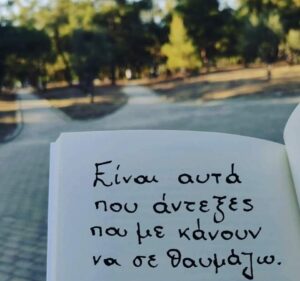 Είναι αυτά
που άντεξες
που με κάνουν
να σε θαυμάζω.